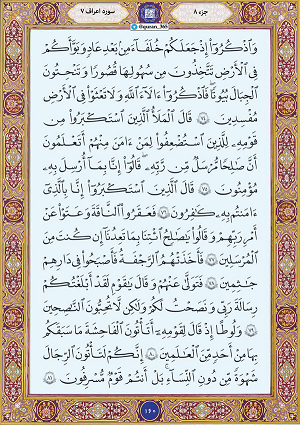 جزء ۸
@quran_365
سوره اعراف ۷
وَٱذْكُرُوٓا۟ إِذْ جَعَلَكُمْ خُلَفَآءَ مِنۢ بَعْدِ عَادٍ وَبَوَّأَكُمْ
فِى ٱلْأَرْضِ تَتَّخِذُونَ مِن سُهُولِهَا قُصُورًا وَتَنْحِتُونَ
ٱلْجِبَالَ بُيُوتًا فَٱذْكُرُوٓا۟ ءَالَآءَ ٱللَّهِ وَلَا تَعْثَوْا۟ فِى ٱلْأَرْضِ
مُفْسِدِينَ ﴿٧٤﴾ قَالَ ٱلْمَلَأُ ٱلَّذِينَ ٱسْتَكْبَرُوا۟ مِن
قَوْمِهِۦ لِلَّذِينَ ٱسْتُضْعِفُوا۟ لِمَنْ ءَامَنَ مِنْهُمْ أَتَعْلَمُونَ
أَنَّ صَٰلِحًا مُّرْسَلٌ مِّن رَّبِّهِۦ قَالُوٓا۟ إِنَّا بِمَآ أُرْسِلَ بِهِۦ
مُؤْمِنُونَ ﴿٧٥﴾ قَالَ ٱلَّذِينَ ٱسْتَكْبَرُوٓا۟ إِنَّا بِٱلَّذِىٓ
ءَامَنتُم بِهِۦ كَٰفِرُونَ ﴿٧٦﴾ فَعَقَرُوا۟ ٱلنَّاقَةَ وَعَتَوْا۟ عَنْ
أَمْرِ رَبِّهِمْ وَقَالُوا۟ يَٰصَٰلِحُ ٱئْتِنَا بِمَا تَعِدُنَآ إِن كُنتَ مِنَ
ٱلْمُرْسَلِينَ ﴿٧٧﴾ فَأَخَذَتْهُمُ ٱلرَّجْفَةُ فَأَصْبَحُوا۟ فِى دَارِهِمْ
جَٰثِمِينَ ﴿٧٨﴾ فَتَوَلَّىٰ عَنْهُمْ وَقَالَ يَٰقَوْمِ لَقَدْ أَبْلَغْتُكُمْ
رِسَالَةَ رَبِّى وَنَصَحْتُ لَكُمْ وَلَٰكِن لَّا تُحِبُّونَ ٱلنَّٰصِحِينَ
﴿٧٩﴾ وَلُوطًا إِذْ قَالَ لِقَوْمِهِۦٓ أَتَأْتُونَ ٱلْفَٰحِشَةَ مَا سَبَقَكُم
بِهَا مِنْ أَحَدٍ مِّنَ ٱلْعَٰلَمِينَ ﴿٨٠﴾ إِنَّكُمْ لَتَأْتُونَ ٱلرِّجَالَ
شَهْوَةً مِّن دُونِ ٱلنِّسَآءِ بَلْ أَنتُمْ قَوْمٌ مُّسْرِفُونَ ﴿٨١﴾
۱۶۰